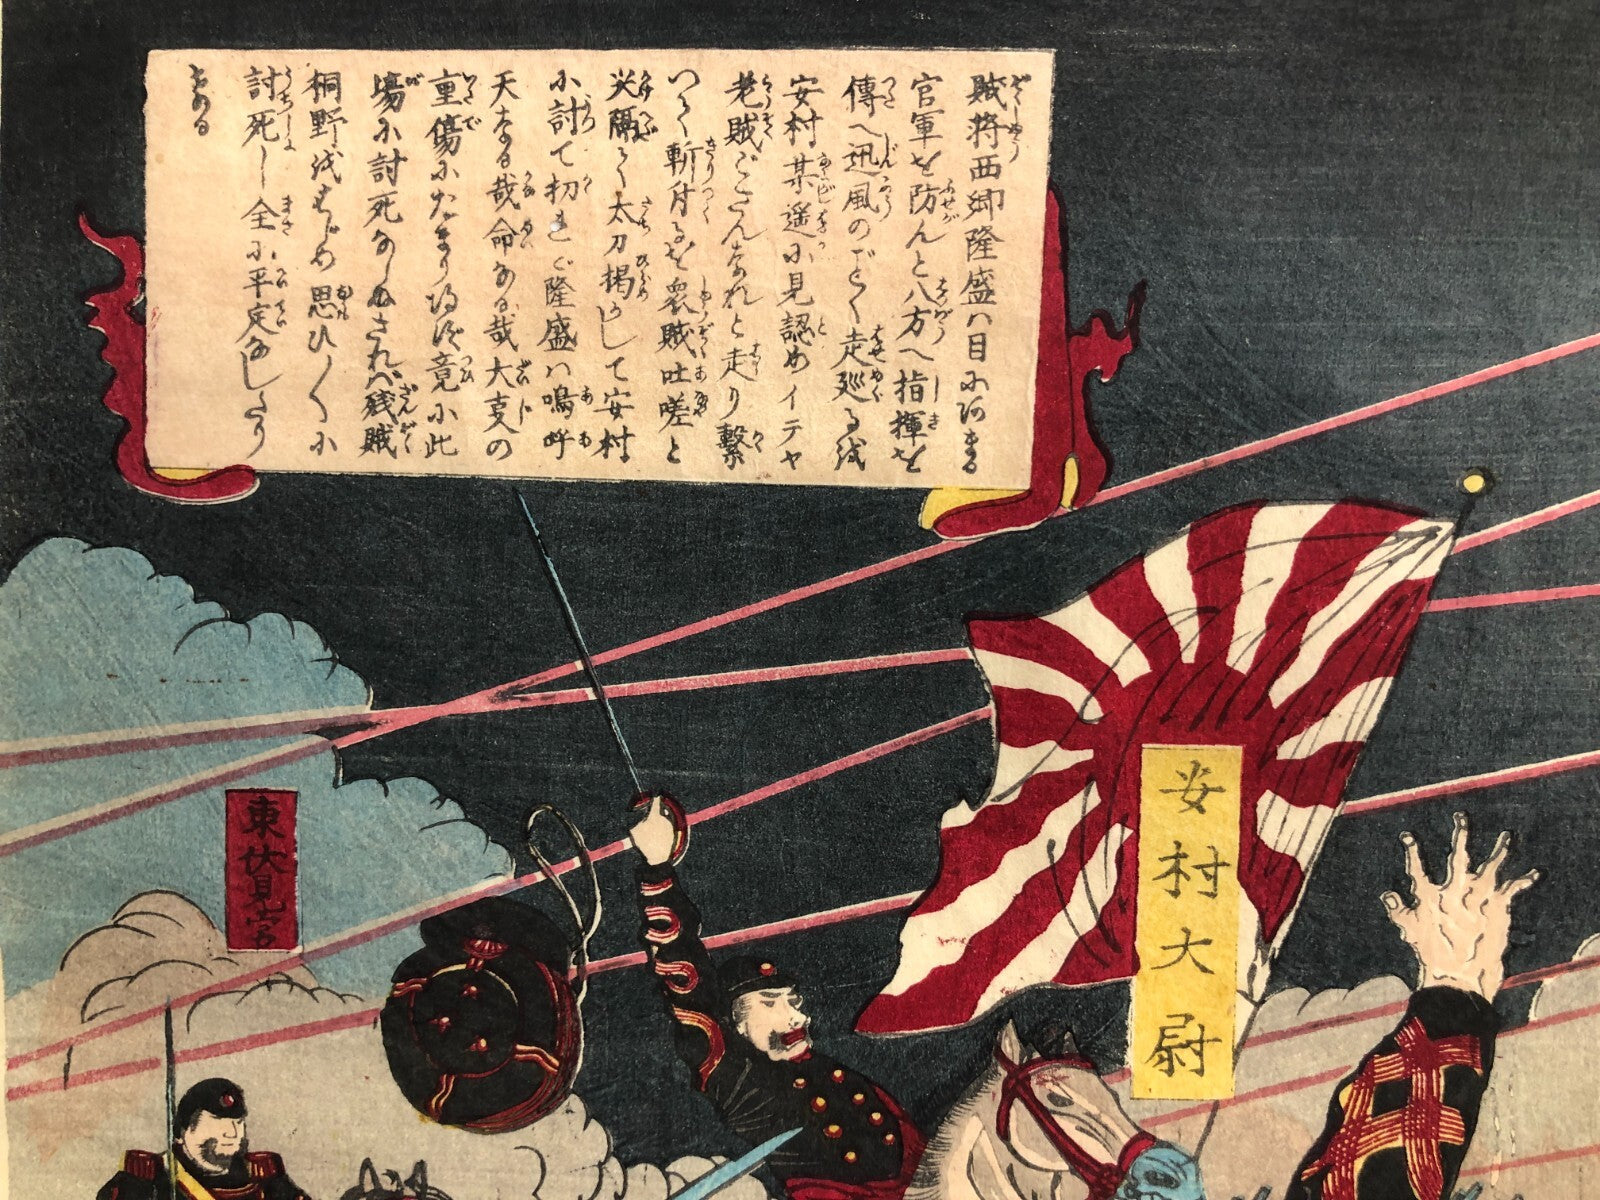 賊将西郷隆盛ハ目にあまる
官軍を防んと八方へ指揮を
傳へ迅風のごとく走廻るを
安村某遥に見認めイテヤ
老賊ござんなれと走り繋
つゝ斬付るを衆賊吐嗟と
火隔てゝ太刀揭かして安村
に討て打れバ隆盛ハ嗚呼
天なる哉命なる哉大夏の
重傷にたまり得ず竟に此
場に討死なしぬされバ残賊
桐野をはじめ思ひ〳〵に
討死し全に平定なしたり
となる
安村大尉
東伏見宮